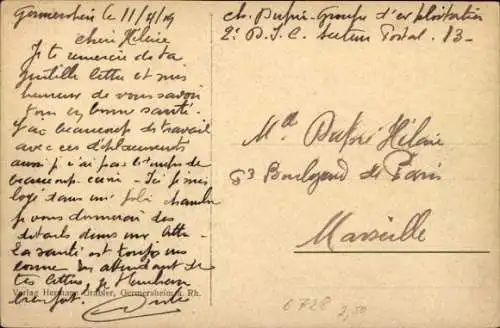 Germersheim le 11/4/19
Chère Hélène
Je te remercie de ta
gentille lettre et suis
heureux de vous savoir
tous en bonne santé.
J'ai beaucoup de travail
avec ces déplacements
aussi je n'ai pas le temps de
beaucoup écrire - Ici je suis
logé dans une jolie chambre
je vous donnerai des
détails dans une lettre
La santé est toujours
bonne
tes lettres, je t'embrasse
bien fort.
Verlag Hermann Gräbler, Germersheim a. Rh.
ch. Dupré - Groupe d'exploitation
2e D.I.C. Secteur Postal. 13-
Mlle Dupré Hélène
63 Boulevard de Paris
Marseille
6728
2,50